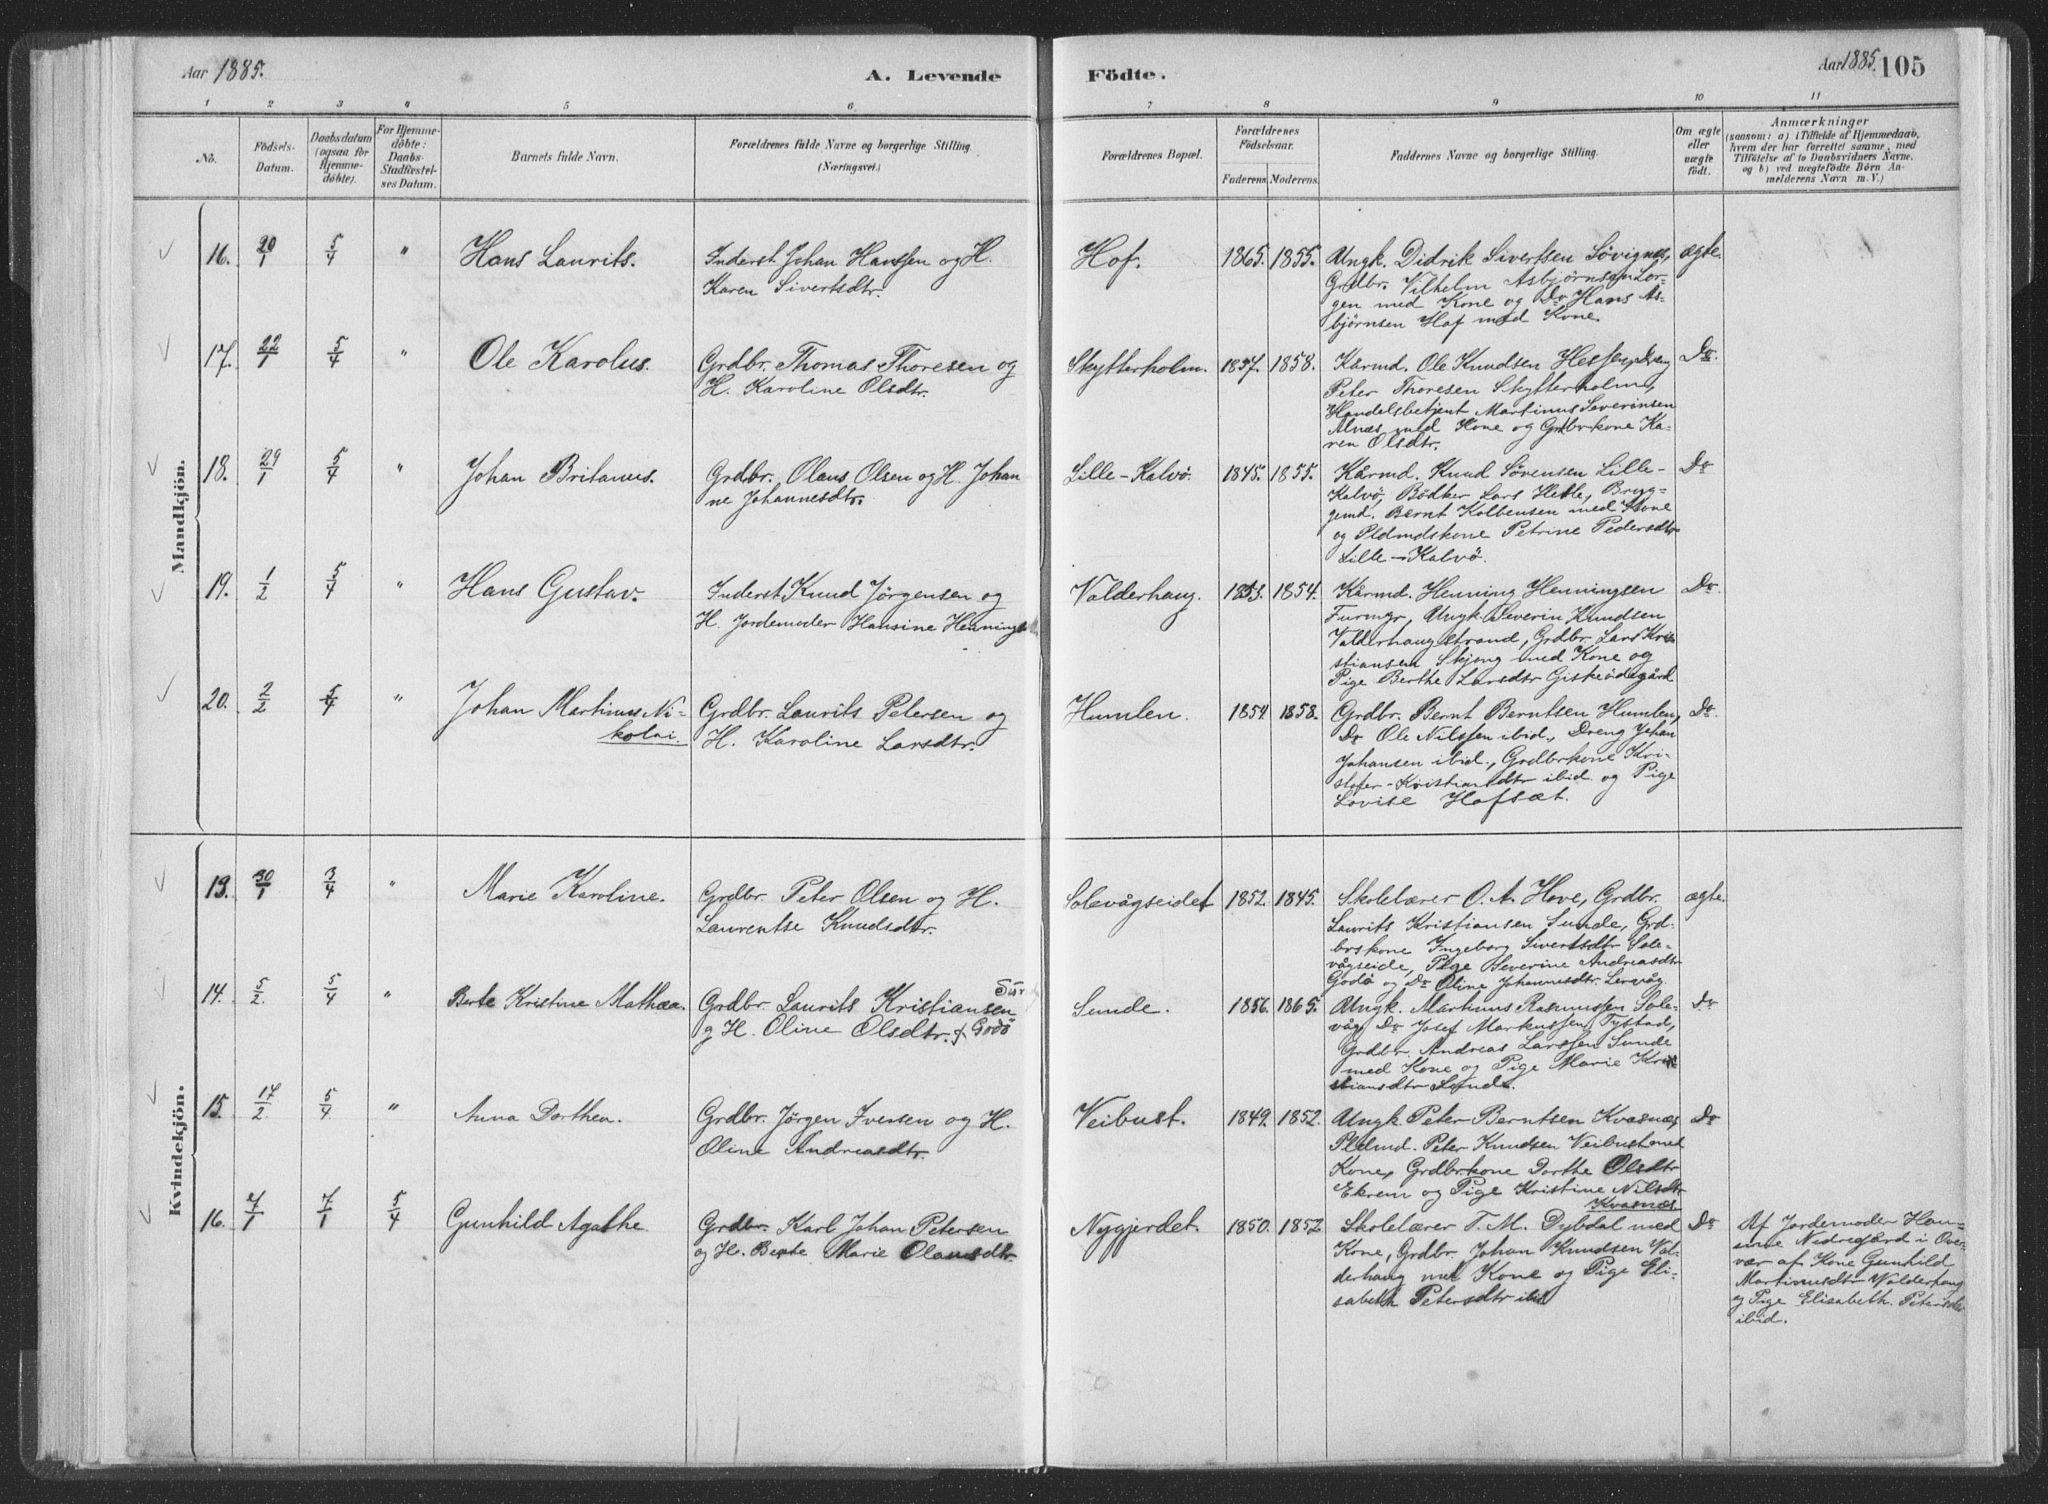 Aar 1885.
A. Levende
Födte.
Aar 1885. 105
1 2 3 4 5 6 7 8 9 10 11
No.
Födsels-
Datum.
Daabsdatum
(ogsaa for
Hjemme-
döbte).
For Hjemme-
döbte:
Daabs-
Stadfæstel-
ses Datum.
Barnets fulde Navn.
Forældrenes fulde Navne og borgerlige Stilling.
(Næringsvei.)
Forældrenes Bopæl.
Forældrenes
Födselsaar.
Faderens. Moderens.
Faddernes Navne og borgerlige Stilling.
Om ægte
eller
uægte
födt.
Anmærkninger
(saasom: a) i Tilfælde af Hjemmedaab,
hvem der har forrettet samme, med
Tilföielse af to Daabsvidners Navne,
og b) ved uægtefödte Börn An-
melderens Navn m. V.)
Mandkjön.
16. 20/1 5/4 " Hans Laurits.
Inderst Johan Hanssen og H.
Karen Sivertsdtr.
Hof. 1865. 1855.
Ungk. Didrik Sivertsen Søvignes,
Grdbr. Vilhelm Asbjørnsen Lor-
gen med Kone og Do Hans As-
bjørnsen Hof med Kone.
ægte.
17. 22/1 5/4 " Ole Karolus.
Grdbr. Thomas Thoresen og
H. Karoline Olsdtr.
Skytterholm. 1857. 1858.
Kårmd. Ole Knudsen Hessen, Dreng
Peter Thoresen Skytterholm,
Handelsbetjent Martinus Severinsen
Alnæs med Kone og Grdbrkone Ka-
ren Olsdtr.
Do
18. 29/1 5/4 " Johan Britanus.
Grdbr. Olaus Olsen og H. Johan
ne Johannesdtr.
Lille-Kalvø. 1845. 1855.
Kårmd. Knud Sövensen Lille-
Kalvø, Bødker Lars Hesle, Bryg-
gemd. Bernt Kolbensen med Kone
og Pldmdskone Petrine Pedersdtr
Lille-Kalvø.
Do
19. 1/2 5/4 " Hans Gustav.
Inderst Knud Jørgensen og
H. Jordemoder Hansine Hennings
Valderhaug. 1853. 1854.
Kårmd. Henning Henningsen
Furmyr, Ungk. Severin Knudsen
Valderhaugstrand, Grdbr. Lars Kri-
stiansen Skjong med Kone og
Pige Berthe Larsdtr Giskeødegård
Do
20. 2/2 5/4 " Johan Martinus Ni-
kolai.
Grdbr. Laurits Petersen og
H. Karoline Larsdtr.
Humlen. 1854 1858.
Grdbr. Bernt Berntsen Humlen,
Do Ole Nilssen ibid., Dreng Johan
Johansen ibid., Grdbrkone Kri-
stofer-Kristiansdtr ibid. og Pige
Lovise Hofsæt.
Do
Kvindekjön.
13. 30/1 3/4 " Marie Karoline.
Grdbr. Peter Olsen og H.
Laurentse Knudsdtr.
Solevågseidet 1852. 1845.
Skolelærer O. A. Hove, Grdbr.
Laurits Kristiansen Sunde, Grd-
brskone Ingeborg Sivertsdtr Sole-
vågseide, Pige Severine Andreasdtr
Godø og Do Oline Johannesdtr Lervåg.
ægte.
14. 5/2. 5/4 " Berte Kristine Mathea.
Grdbr. Laurits Kristiansen
og H. Oline Olsdtr. f Godø
Sunde. 1856. 1865.
Ungk. Martinus Rasmussen Sole-
våg, Do Josef Markussen Tystad,
Grdbr. Andreas Larssen Sunde
med Kone og Pige Marie Kri-
stiansdtr Sunde.
Do
15. 17/2 5/4 " Anna Dorthea.
Grdbr. Jørgen Iversen og H.
Oline Andreasdtr.
Veibust. 1849. 1852.
Ungk. Peter Berntsen Kvasnæs,
Pldmd. Peter Knudsen Veibust med
Kone, Grdbrkone Dorthe Olsdtr
Ekrem og Pige Kristine Nilsdtr
Kvasnæs.
Do
16. 7/1 7/1 5/4 Gunhild Agathe
Grdbr. Karl Johan Petersen
og H. Berte Marie Olausdtr.
Nygjerdet. 1850. 1852.
Skolelærer T. M. Dybdal med
Kone, Grdbr. Johan Knudsen Val-
derhaug med Kone og Pige Eli-
sabeth Petersdtr ibid
Do
Af Jordemoder Han-
sine Nedregård i Over-
vær af Kone Gunhild
Martinusdtr Valderhaug
og Pige Elisabeth Petersdtr
ibid.